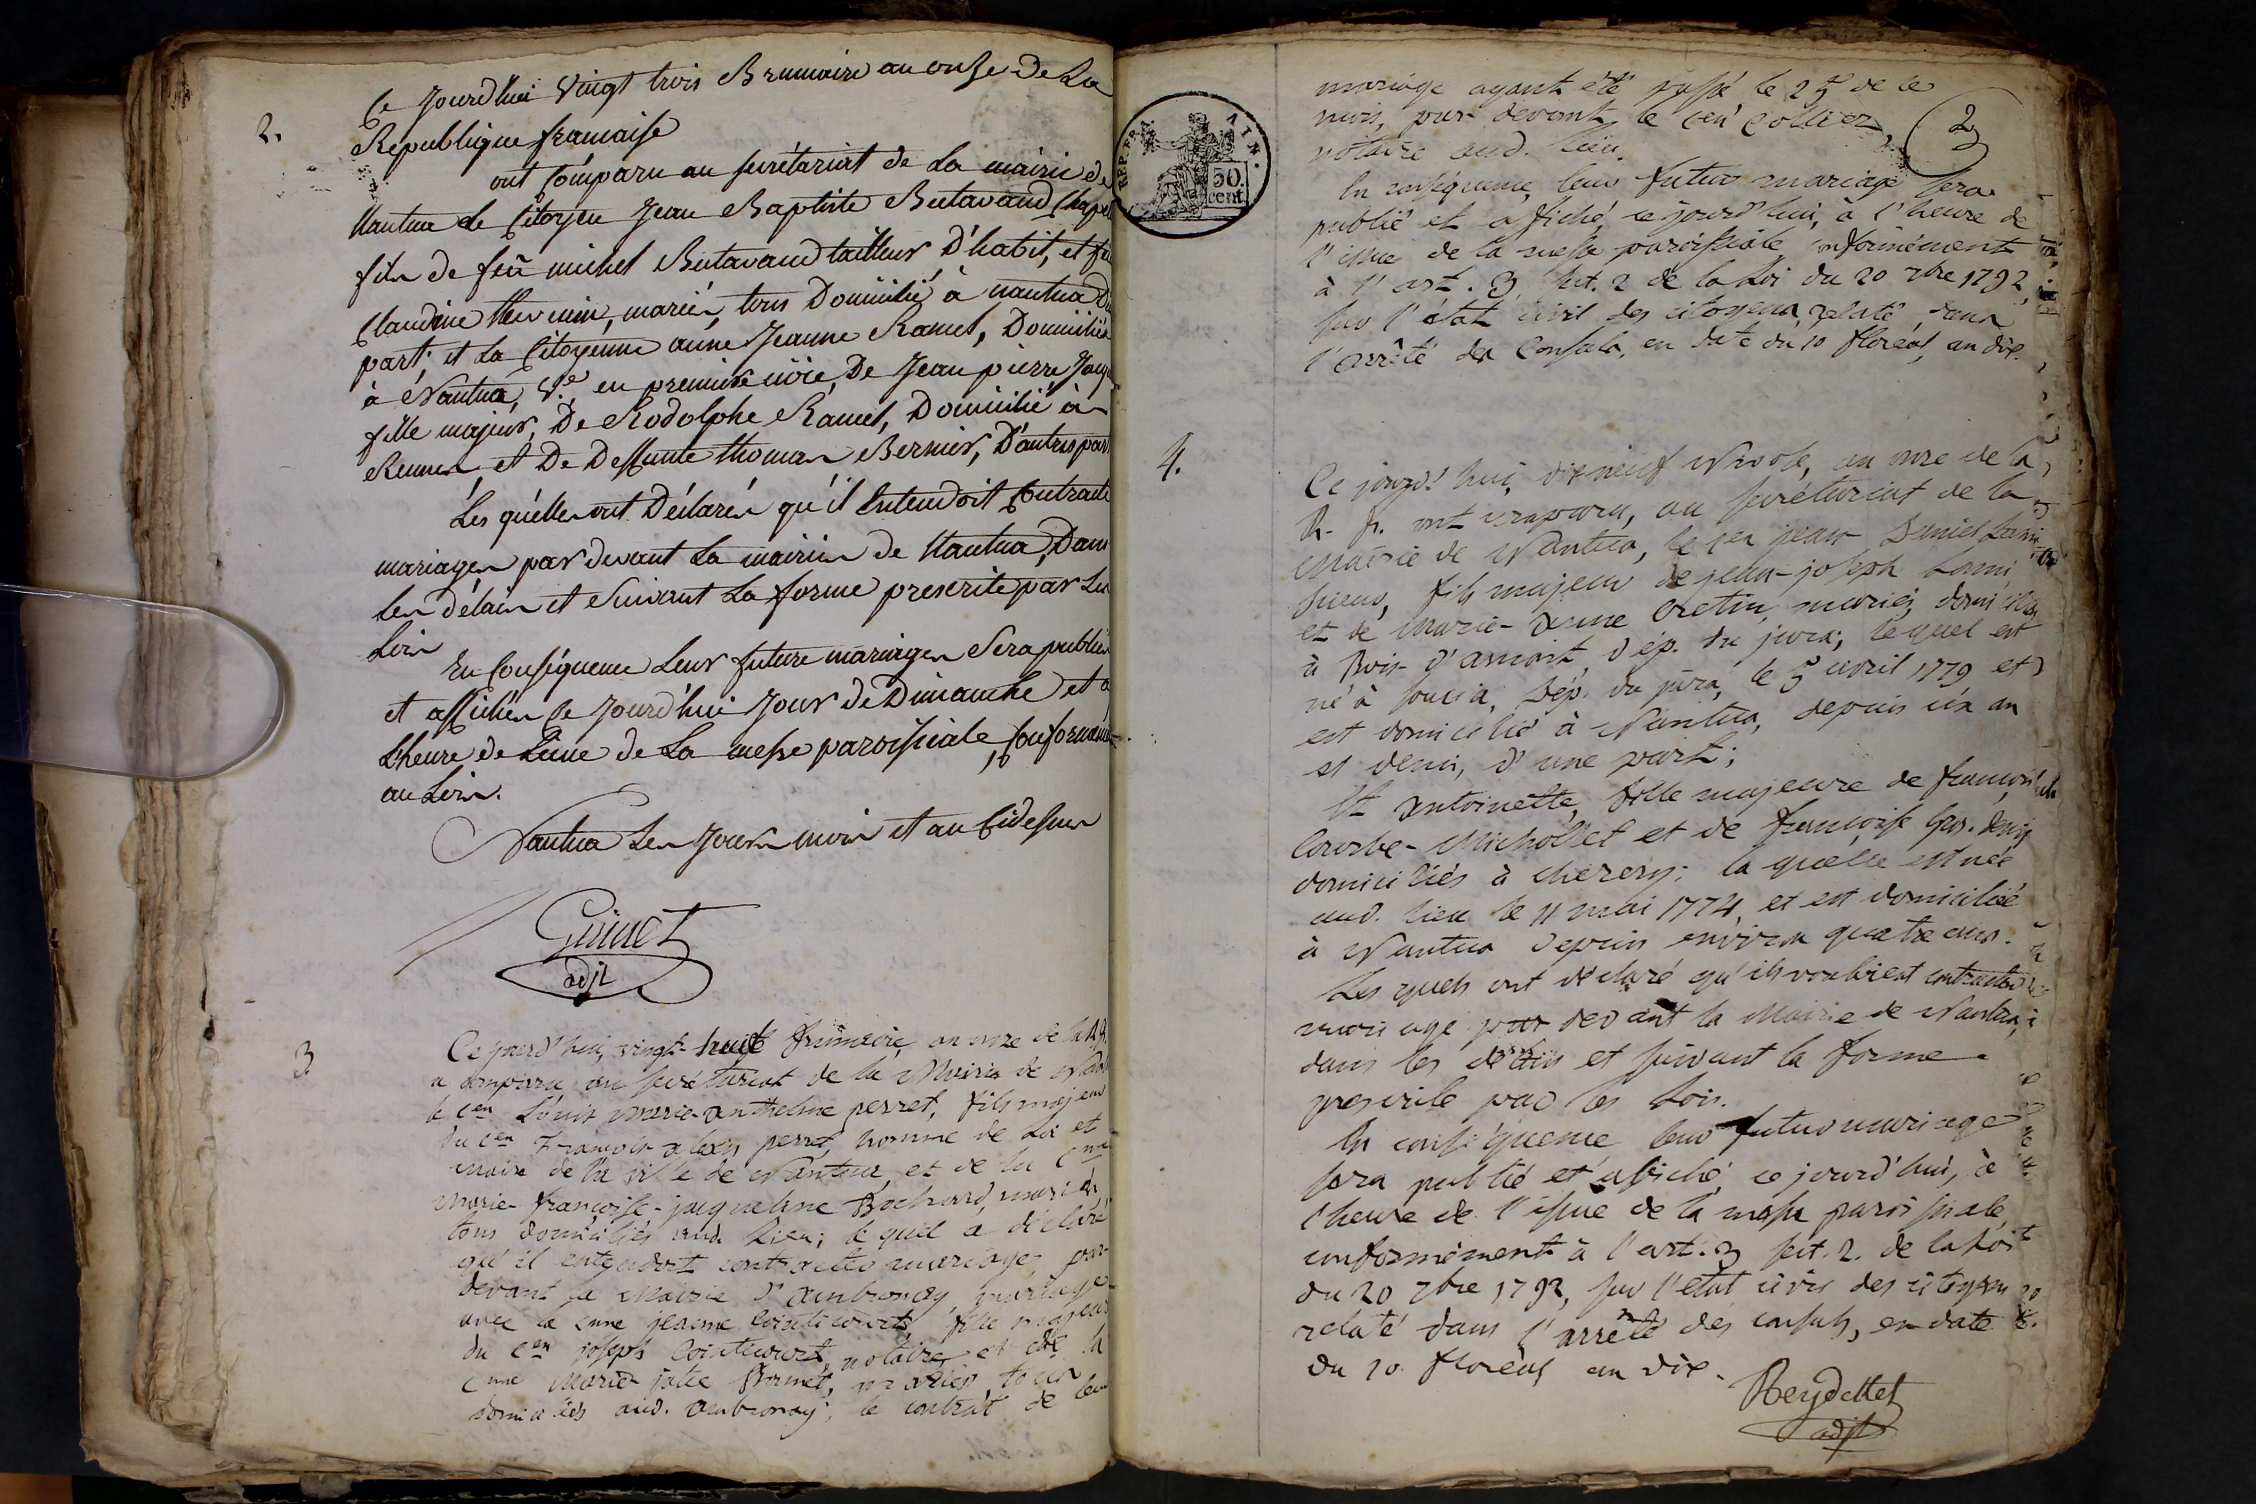 2.
Ce Jourd'hui Vingt trois Brumaire an onze De La
Republique francaise
ont Comparu au secrétariat de La mairie de
Nantua le Citoyen Jean Baptiste Butavand Chapel
fils de feu michel Butavand tailleur D'habit, et feu
Claudine thevenin, mariés, tous Domicilié à nantua D'u
part; et La Citoyenne anne Jeanne Ramel, Domicilié
à Nantua, Ve en premiere De Jean pierre
fille majeur, De Rodolphe Ramel, Domicilié à
et De Deffunte thomas Bernier, D'autres part
Les quélles ont Déclarés qu'il Entendoit Contracte
mariages par devant La mairies de Nantua, Dans
les délais et Suivant La forme prescrite par Les
Lois
En Conséquence Leur future mariages Sera publiés
et affichés Ce Jourd'hui Jour de Dimanche et a
L'heure de de La messe paroissiale, Conformém
au Lois.
Nantua Les Jours mois et an Cidessus
Guinet
adjt
3
Ce jourd'hui, vingt-huit frimaire, an onze de la R. f.
a comparu au secrétariat de la Mairie de Nant
le cen Louis marie-anthelme perret, fils majeur
du cen François perret, homme de Loi et
maire de la ville de Nantua, et de la Cne
Marie-françoise-jaqueline Bochard, mariés,
tous domiciliés aud. Lieu; lequel a déclaré
qu'il entendoit contracter mariage, par-
devant la Mairie d'ambronay,
avec la cnne jeanne Cointicourt, fille majeure
du cen joseph Cointicourt, notaire, et de la
cnne Marie- mariés, tous
domiciliés aud. ambronay; le contrat de leur
mariage ayant été passé le 25 de ce
mois, par devant le Cen Colliez,
notaire aud. lieu.
2
En conséquence, leur futur mariage sera
publié et affiché, ce jourd'hui, à l'heure de
l'issue de la messe paroissiale conformément
à l'art. 3, sect. 2 de la Loi du 20 7bre 1792,
sur l'état civil des citoyens, relaté dans
l'arrêté des Consuls, en date du 10 floréal, an dix.
REP. FRA.
ATIN.
50.
cent.
4.
Ce jourd'hui, dix neuf Nivose, an onze de la
R. fr. ont comparu, au secrétariat de la
Mairie de Nantua, le cen jean Daniel Lami
fils majeur de jean-joseph Lami
et de Marie-Anne Cretin, mariés, domiciliés
à Bois-d'amont, dép. du jura; lequel est
né à dép. du jura, le 5 avril 1779 et
est domicilié à Nantua, depuis un an
et demi, d'une part;
Et Antoinette, fille majeure de françois
Courbe-Michollet et de françoise
domiciliés à cherery; la quelle est née
aud. lieu le 11 mai 1774, et est domiciliée
à Nantua depuis environ quatre ans.
Les quels ont déclaré qu'ils vouloient contracter
mariage par devant la Mairie de Nantua,
dans les délais et suivant la forme
prescrite par les Lois.
En conséquence, leur futur mariage
sera publié et affiché, ce jourd'hui, à
l'heure de l'issue de la messe paroissiale
conformément à l'art. 3 sect. 2. de la Loi
du 20 7bre 1792, sur l'état civil des citoyens
relaté dans l'arrêté des consuls, en date
du 10 floréal an dix.
Reydellet
adjt